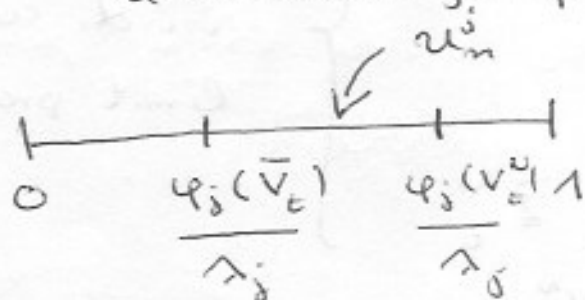 u_n^j
0 φ_j(V̄_t) / λ_j φ_j(V_t^N) / λ_j 1